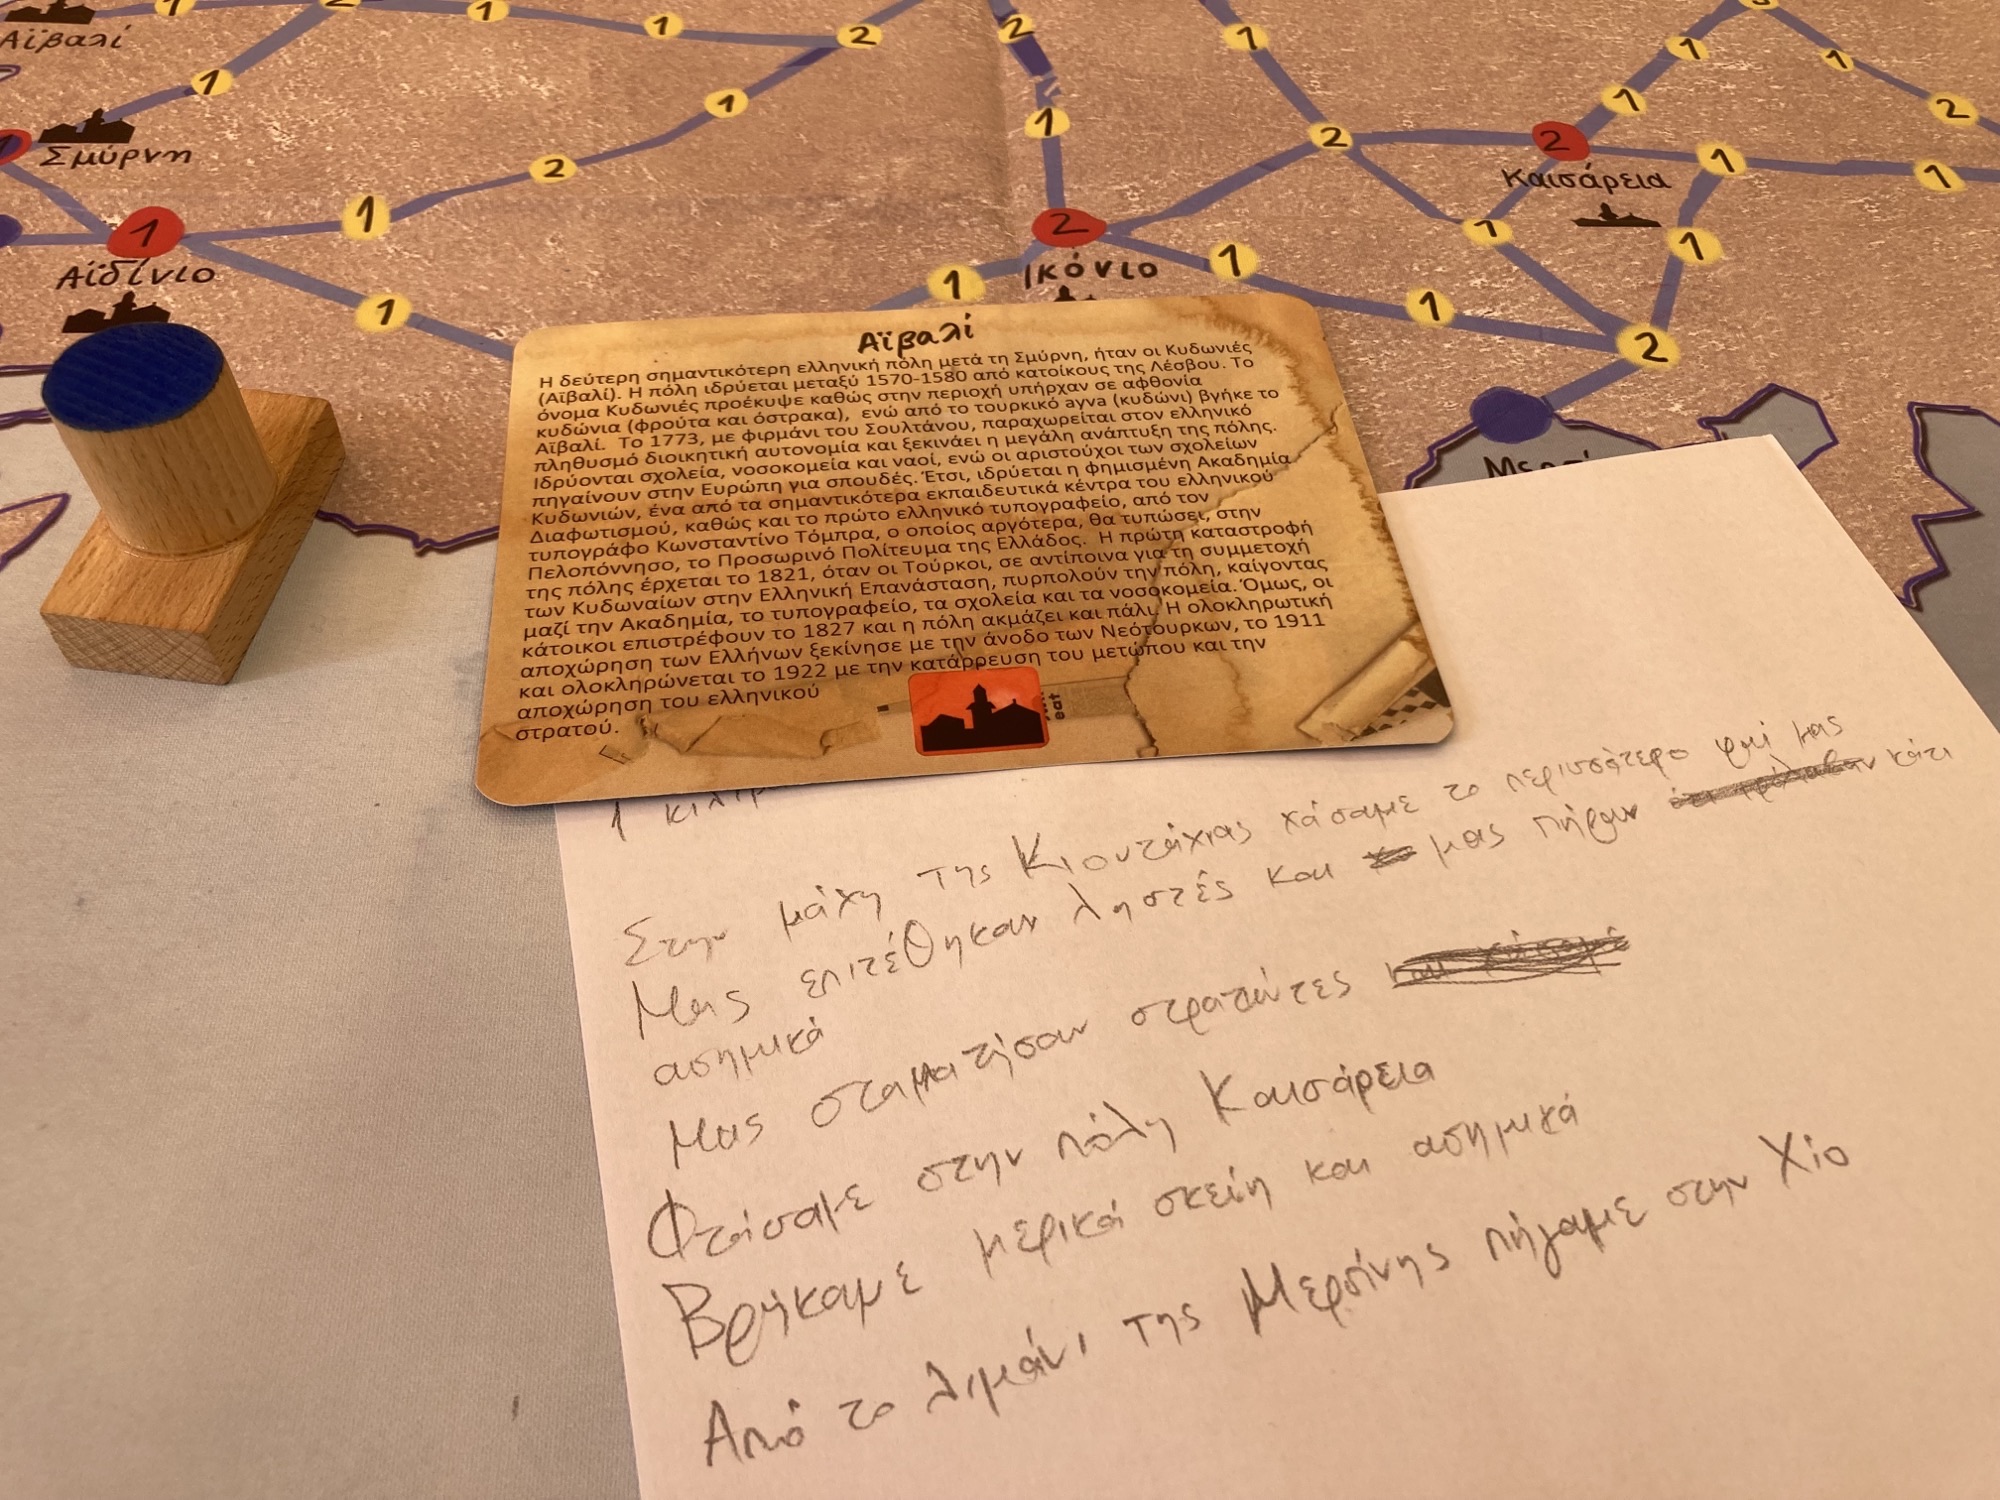 Αϊβαλί
1
1
2
2
1
1
1
1
2
1
1
2
1
2
2
1
1
Σμύρνη
Καισάρεια
1
1
2
1
1
Αϊδίνιο
Ικόνιο
1
1
1
1
2
Αϊβαλί
Η δεύτερη σημαντικότερη ελληνική πόλη μετά τη Σμύρνη, ήταν οι Κυδωνιές
(Αϊβαλί). Η πόλη ιδρύεται μεταξύ 1570-1580 από κατοίκους της Λέσβου. Το
όνομα Κυδωνιές προέκυψε καθώς στην περιοχή υπήρχαν σε αφθονία
κυδώνια (φρούτα και όστρακα), ενώ από το τουρκικό ayva (κυδώνι) βγήκε το
Αϊβαλί. Το 1773, με φιρμάνι του Σουλτάνου, παραχωρείται στον ελληνικό
πληθυσμό διοικητική αυτονομία και ξεκινάει η μεγάλη ανάπτυξη της πόλης.
Ιδρύονται σχολεία, νοσοκομεία και ναοί, ενώ οι αριστούχοι των σχολείων
πηγαίνουν στην Ευρώπη για σπουδές. Έτσι, ιδρύεται η φημισμένη Ακαδημία
Κυδωνιών, ένα από τα σημαντικότερα εκπαιδευτικά κέντρα του ελληνικού
Διαφωτισμού, καθώς και το πρώτο ελληνικό τυπογραφείο, από τον
τυπογράφο Κωνσταντίνο Τόμπρα, ο οποίος αργότερα, θα τυπώσει, στην
Πελοπόννησο, το Προσωρινό Πολίτευμα της Ελλάδος. Η πρώτη καταστροφή
της πόλης έρχεται το 1821, όταν οι Τούρκοι, σε αντίποινα για τη συμμετοχή
των Κυδωναίων στην Ελληνική Επανάσταση, πυρπολούν την πόλη, καίγοντας
μαζί την Ακαδημία, το τυπογραφείο, τα σχολεία και τα νοσοκομεία. Όμως, οι
κάτοικοι επιστρέφουν το 1827 και η πόλη ακμάζει και πάλι. Η ολοκληρωτική
αποχώρηση των Ελλήνων ξεκίνησε με την άνοδο των Νεότουρκων, το 1911
και ολοκληρώνεται το 1922 με την κατάρρευση του μετώπου και την
αποχώρηση του ελληνικού
στρατού.
eat
1
Στην μάχη της Κιουτάχιας χάσαμε το περισσότερο φαΐ μας
Μας επιτέθηκαν ληστές και μας πήραν κάτι
ασημικά
Μας σταματήσαν στρατιώτες
Φτάσαμε στην πόλη Καισάρεια
Βρήκαμε μερικά σκεύη και ασημικά
Από το λιμάνι της Μερσίνης πήγαμε στην Χίο